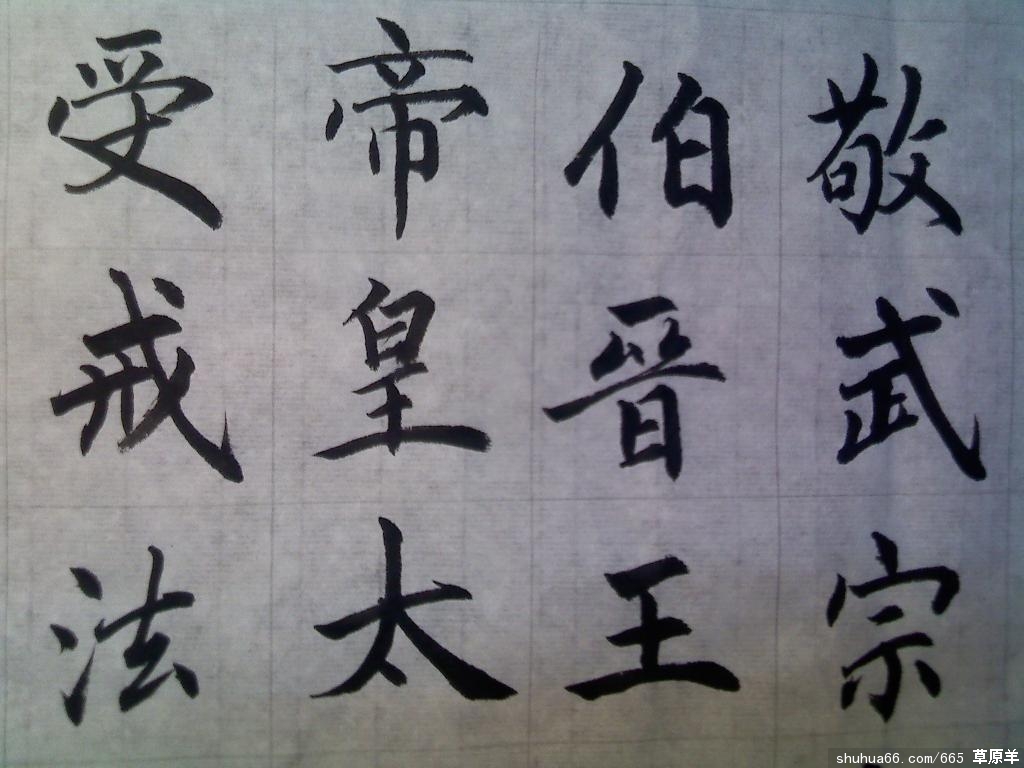 敬武宗
伯晋王
帝皇太
受戒法
shuhua66.com/665 草原羊